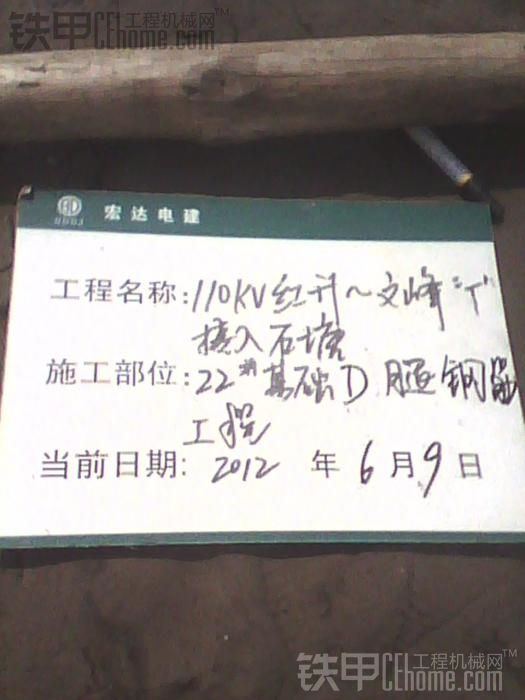 铁甲 工程机械网™
CEhome.com
HDDJ 宏达电建
工程名称:110KV红升~文峰"T"
接入石塘
施工部位:22#基础D腿钢筋
工程
当前日期:2012年6月9日
铁甲 工程机械网™
CEhome.com